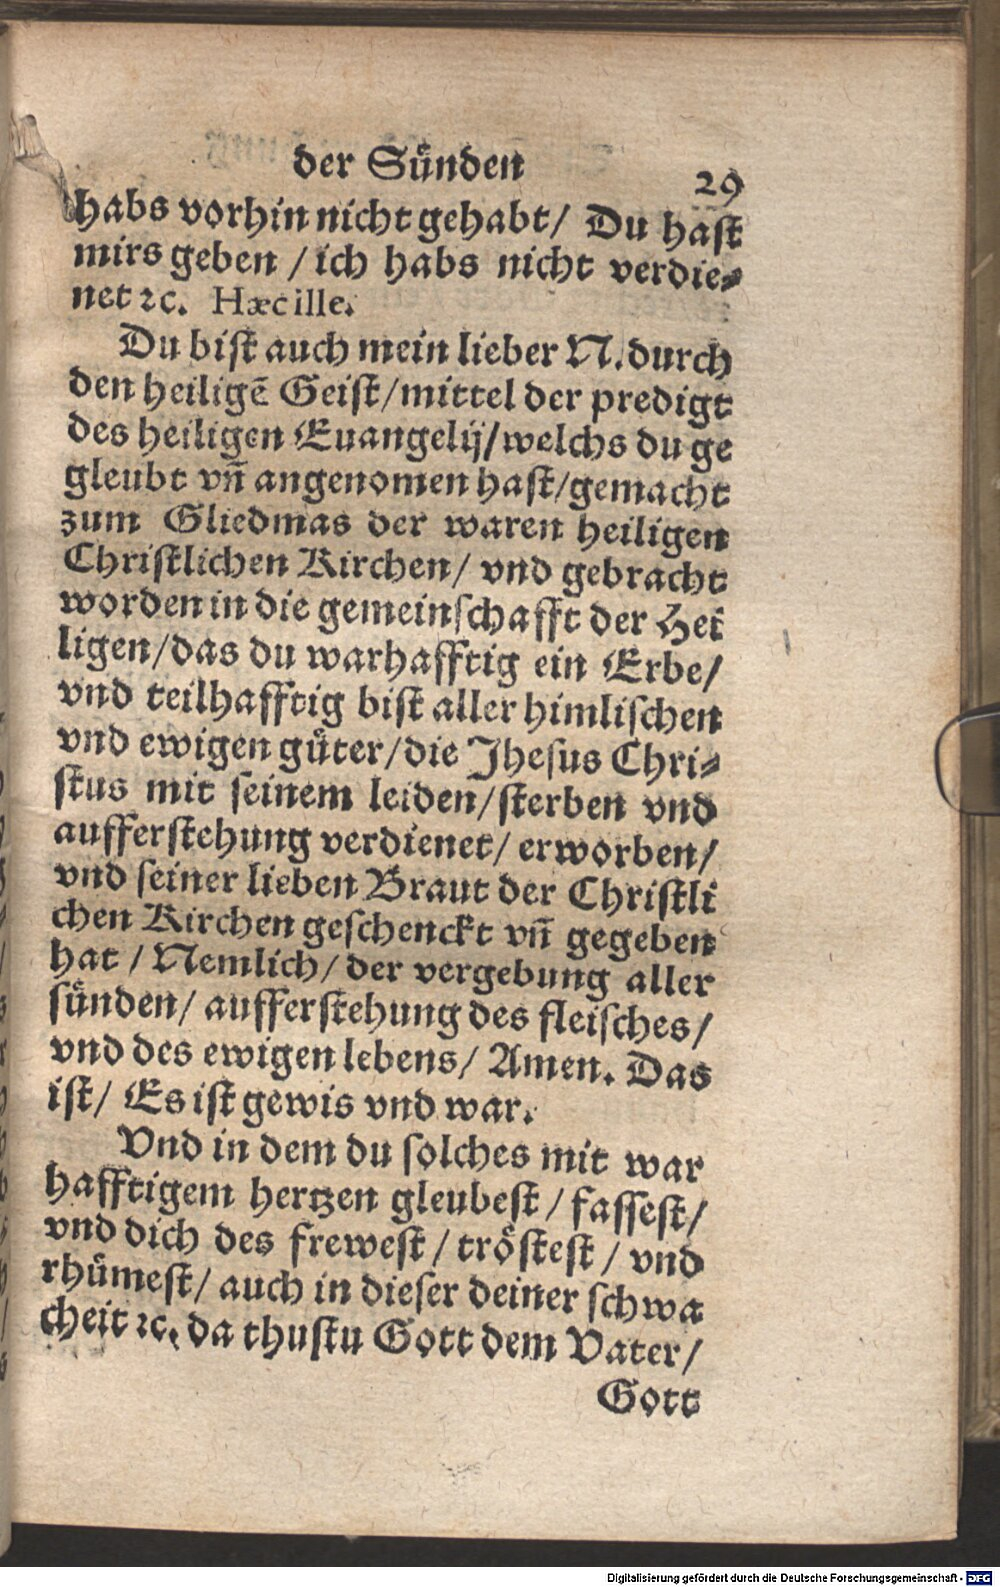 der Sünden
29
habs vorhin nicht gehabt/ Du haſt
mirs geben / ich habs nicht verdie⸗
net ꝛc. Hæc ille.
Du biſt auch mein lieber N. durch
den heiligẽ Geiſt/mittel der predigt
des heiligen Euangelij/welchs du ge
gleubt vñ angenomen haſt/gemacht
zum Gliedmas der waren heiligen
Chriſtlichen Kirchen/ vnd gebracht
worden in die gemeinſchafft der Hei
ligen/das du warhafftig ein Erbe/
vnd teilhafftig biſt aller himliſchen
vnd ewigen guͤter/die Jheſus Chri⸗
ſtus mit ſeinem leiden/ſterben vnd
aufferſtehung verdienet/ erworben/
vnd ſeiner lieben Braut der Chriſtli
chen Kirchen geſchenckt vñ gegeben
hat / Nemlich/ der vergebung aller
ſuͤnden/ aufferſtehung des fleiſches/
vnd des ewigen lebens/ Amen. Das
iſt/ Es iſt gewis vnd war.
Vnd in dem du ſolches mit war
hafftigem hertzen gleubeſt / faſſeſt/
vnd dich des freweſt / troͤſteſt / vnd
rhuͤmeſt/ auch in dieſer deiner ſchwa
cheit ꝛc. da thuſtu Gott dem Vater/
Gott
Digitalisierung gefördert durch die Deutsche Forschungsgemeinschaft - DFG